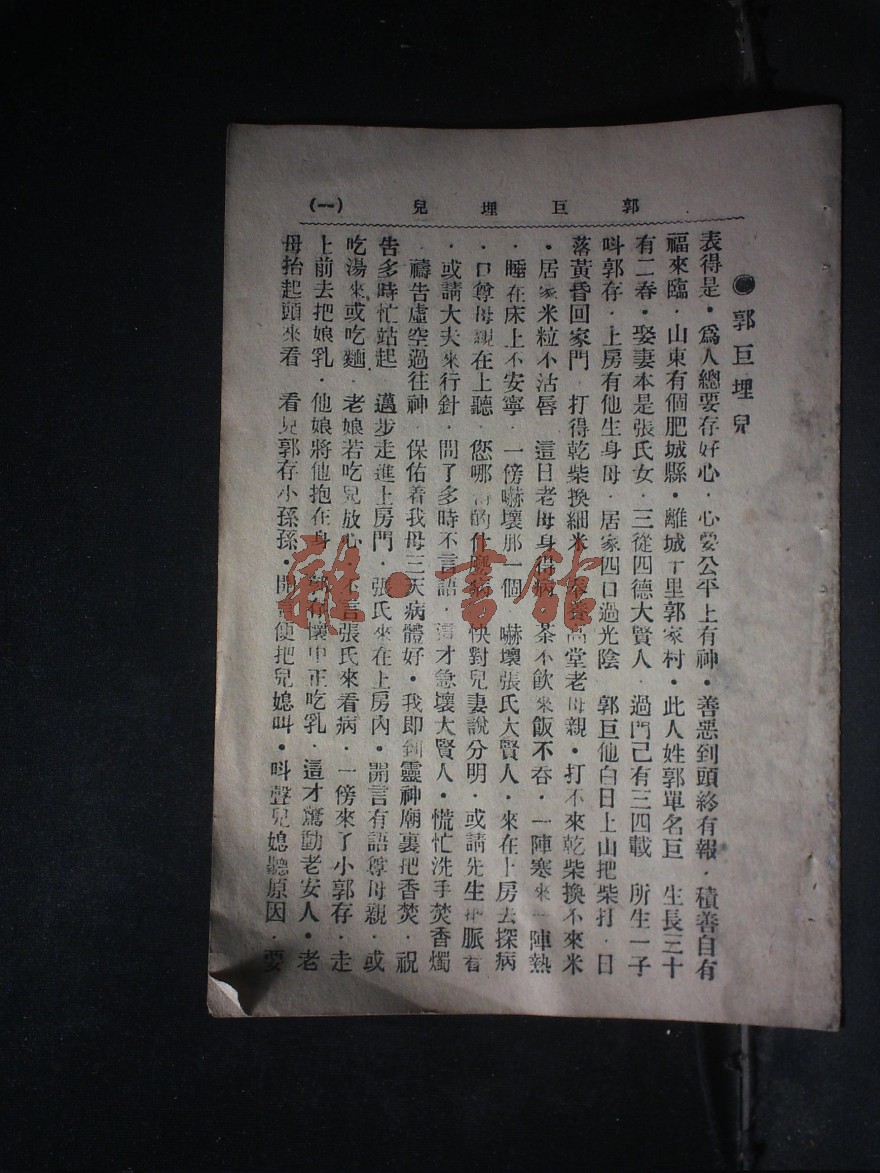 郭巨埋兒 (一)
●郭巨埋兒
表得是・爲人總要存好心・心要公平上有神・善惡到頭終有報・積善自有
福來臨・山東有個肥城縣・離城十里郭家村・此人姓郭單名巨 生長三十
有二春・娶妻本是張氏女・三從四德大賢人・過門己有三四載 所生一子
呌郭存・上房有他生身母・居家四口過光陰 郭巨他白日上山把柴打・日
落黃昏回家門 打得乾柴換細米 高堂老母親・打不來乾柴換不來米
・居家米粒不沾唇 這日老母身得病 茶不飲來飯不吞・一陣寒來一陣熱
・睡在床上不安寧・一傍嚇壞那一個 嚇壞張氏大賢人・來在上房去探病
・口尊母親在上聽・您哪 的什麽病 快對兒妻說分明・或請先生 脈看
・或請大夫來行針・問了多時不言語・這才急壞大賢人・慌忙洗手焚香燭
・禱告虛空過往神・保佑着我母三天病體好・我即到靈神廟裏把香焚・祝
告多時忙站起 邁步走進上房門・張氏來在上房內・開言有語尊母親・或
吃湯來或吃麵・老娘若吃兒放心 言張氏來看病・一傍來了小郭存・走
上前去把娘乳・他娘將他抱在身 懷中正吃乳・這才驚動老安人・老
母抬起頭來看 看見郭存小孫孫・開言便把兒媳叫・呌聲兒媳聽原因・要
雜・書館